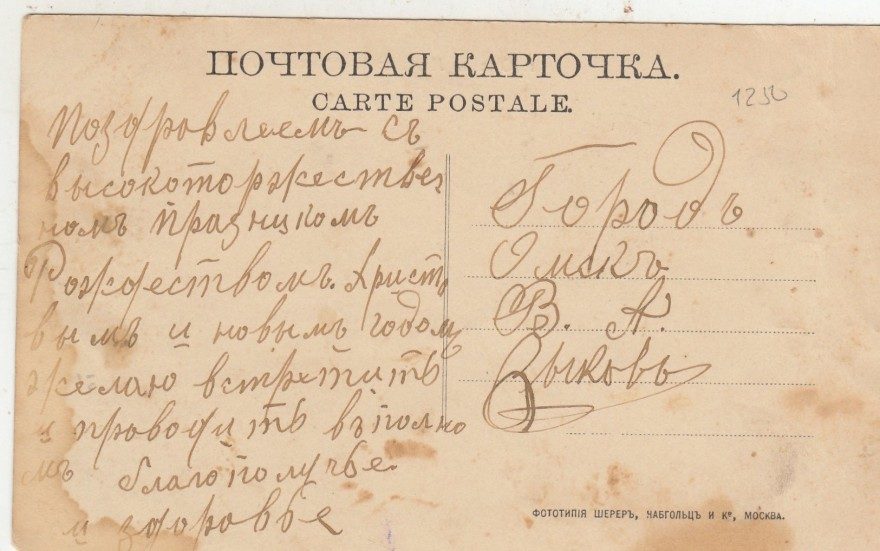 ПОЧТОВАЯ КАРТОЧКА.
CARTE POSTALE.
1250
Поздровляемъ съ
высокоторжествен
номъ празникомъ
Рождествомъ. Христо
вымъ и новымъ годомъ
желаю встретить
и проводить вполно
мъ благополучье.
и здоровье
Городъ
Омскъ
В. А.
Зыковъ
ФОТОТИПІЯ ШЕРЕРЪ, НАБГОЛЬЦЪ И Кº, МОСКВА.